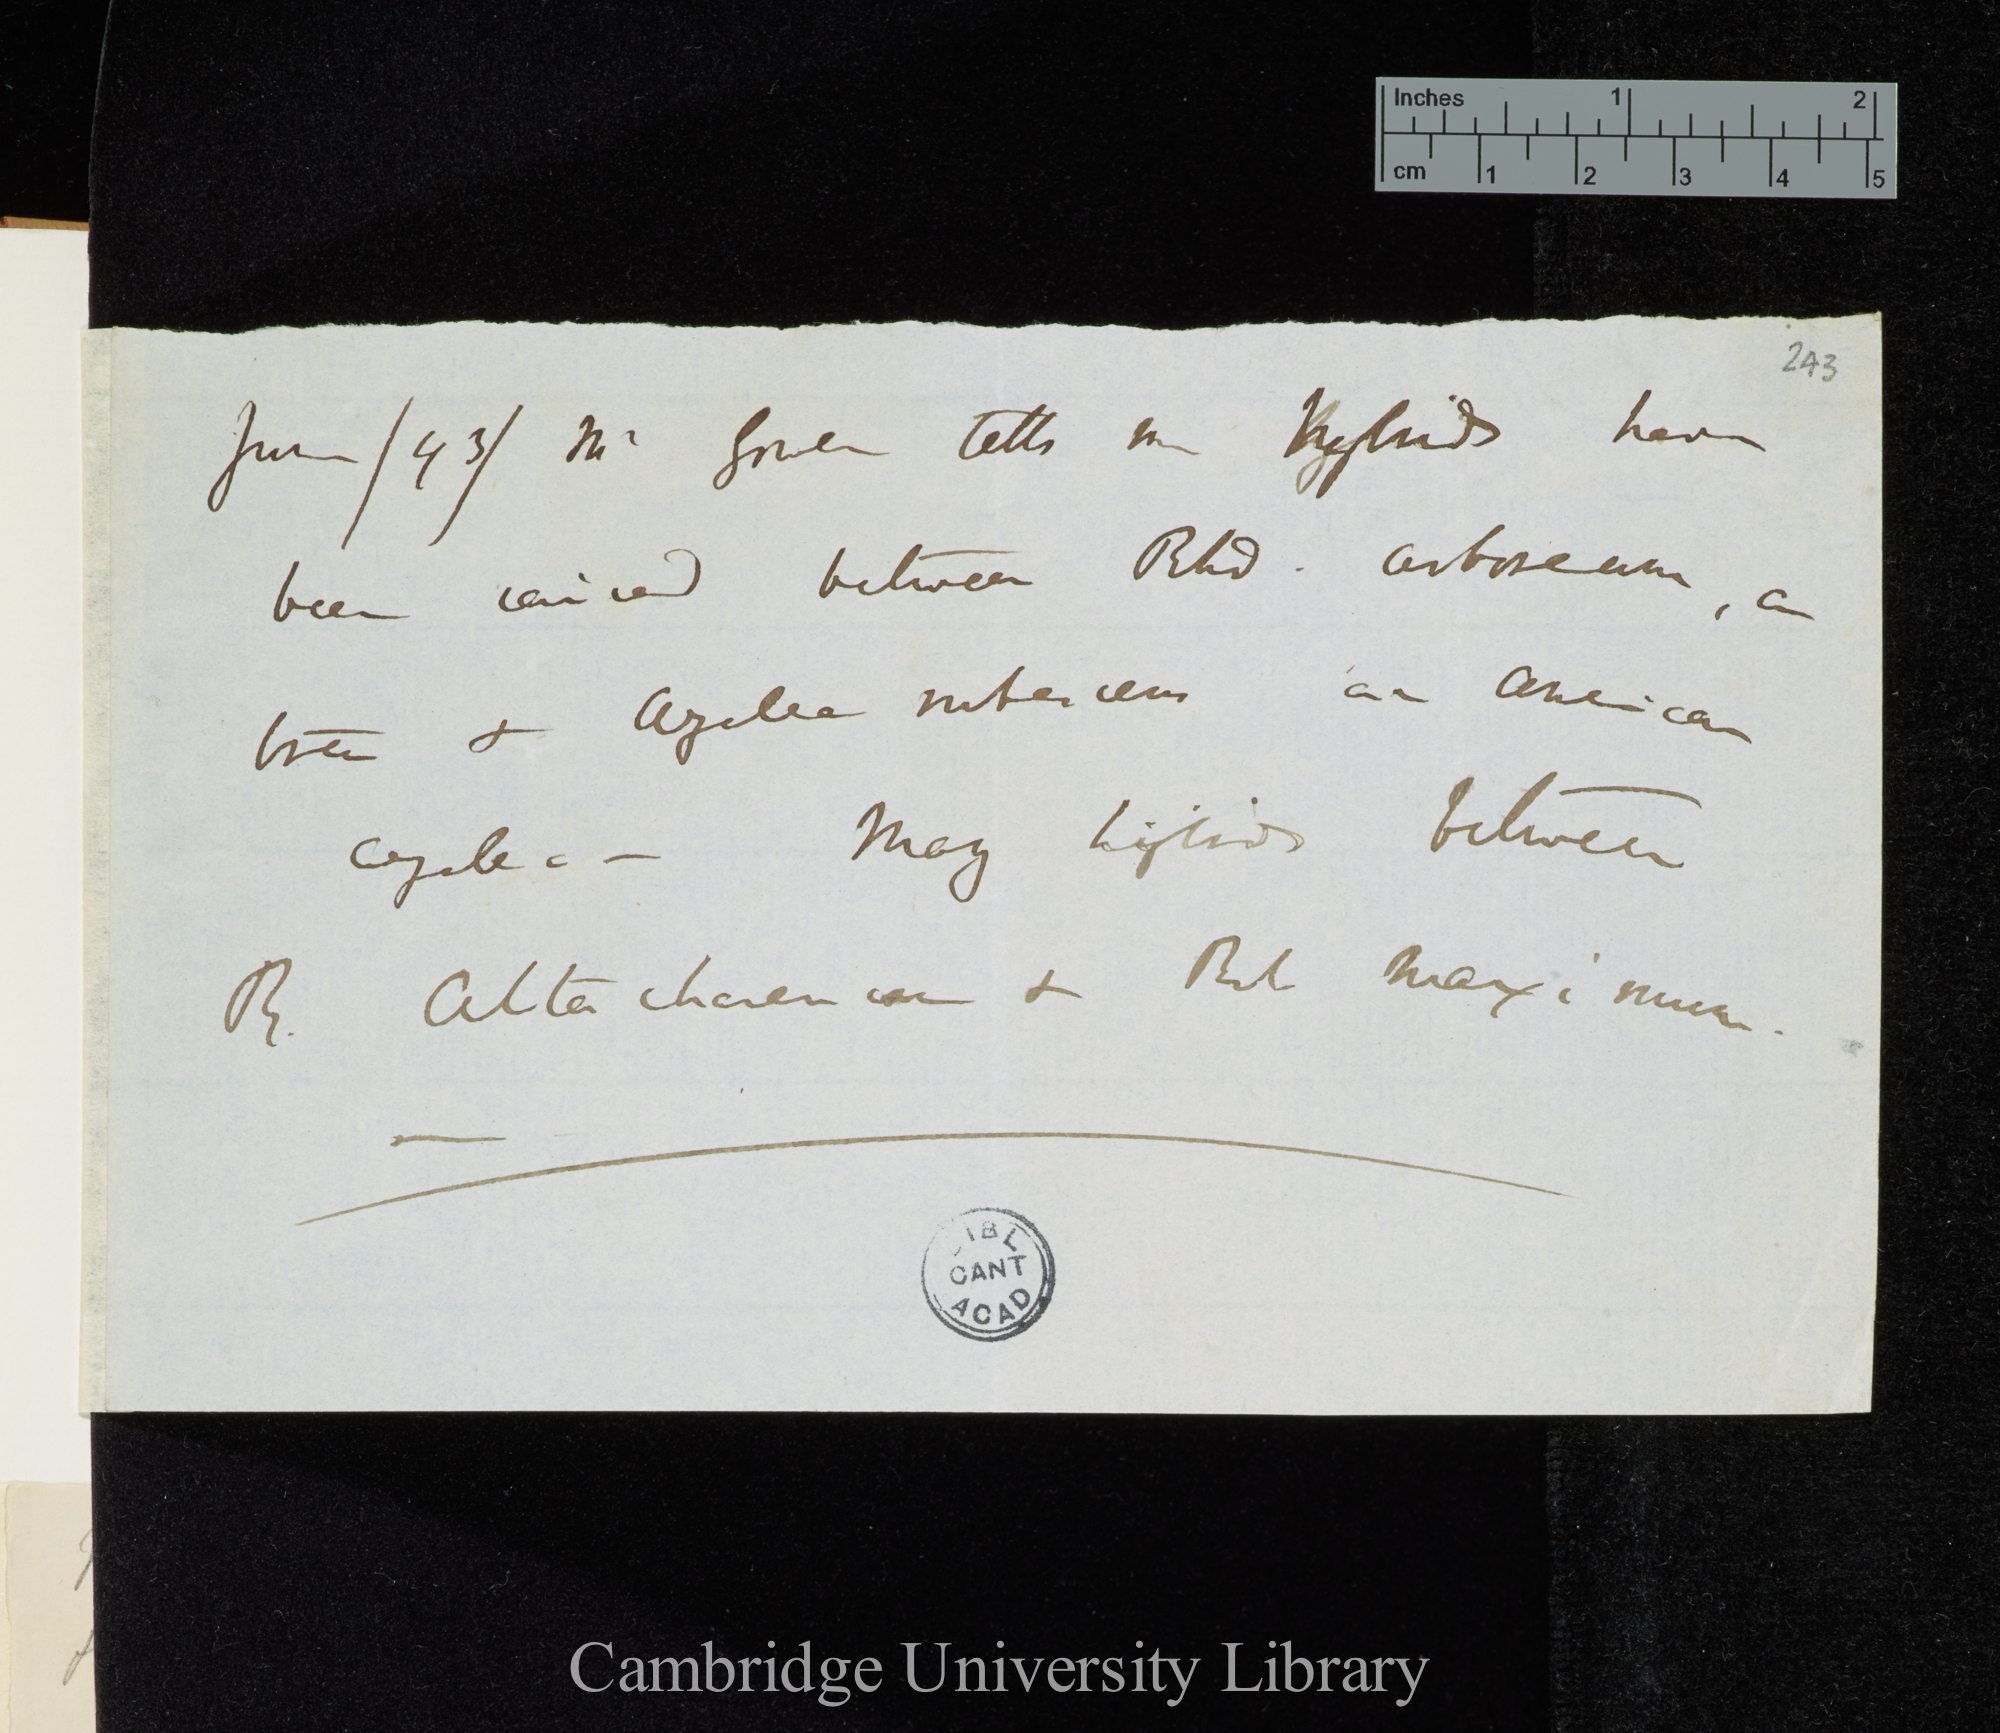 Inches 1 2
cm 1 2 3 4 5
243
June /43/ Mr Gowen tells me Hybrids have
been raised between Rhod. arboreum, a
tree & Azalea an American
azalea — Many hybrids between
R. & Rh maximum.
BIBL
CANT
ACAD
Cambridge University Library